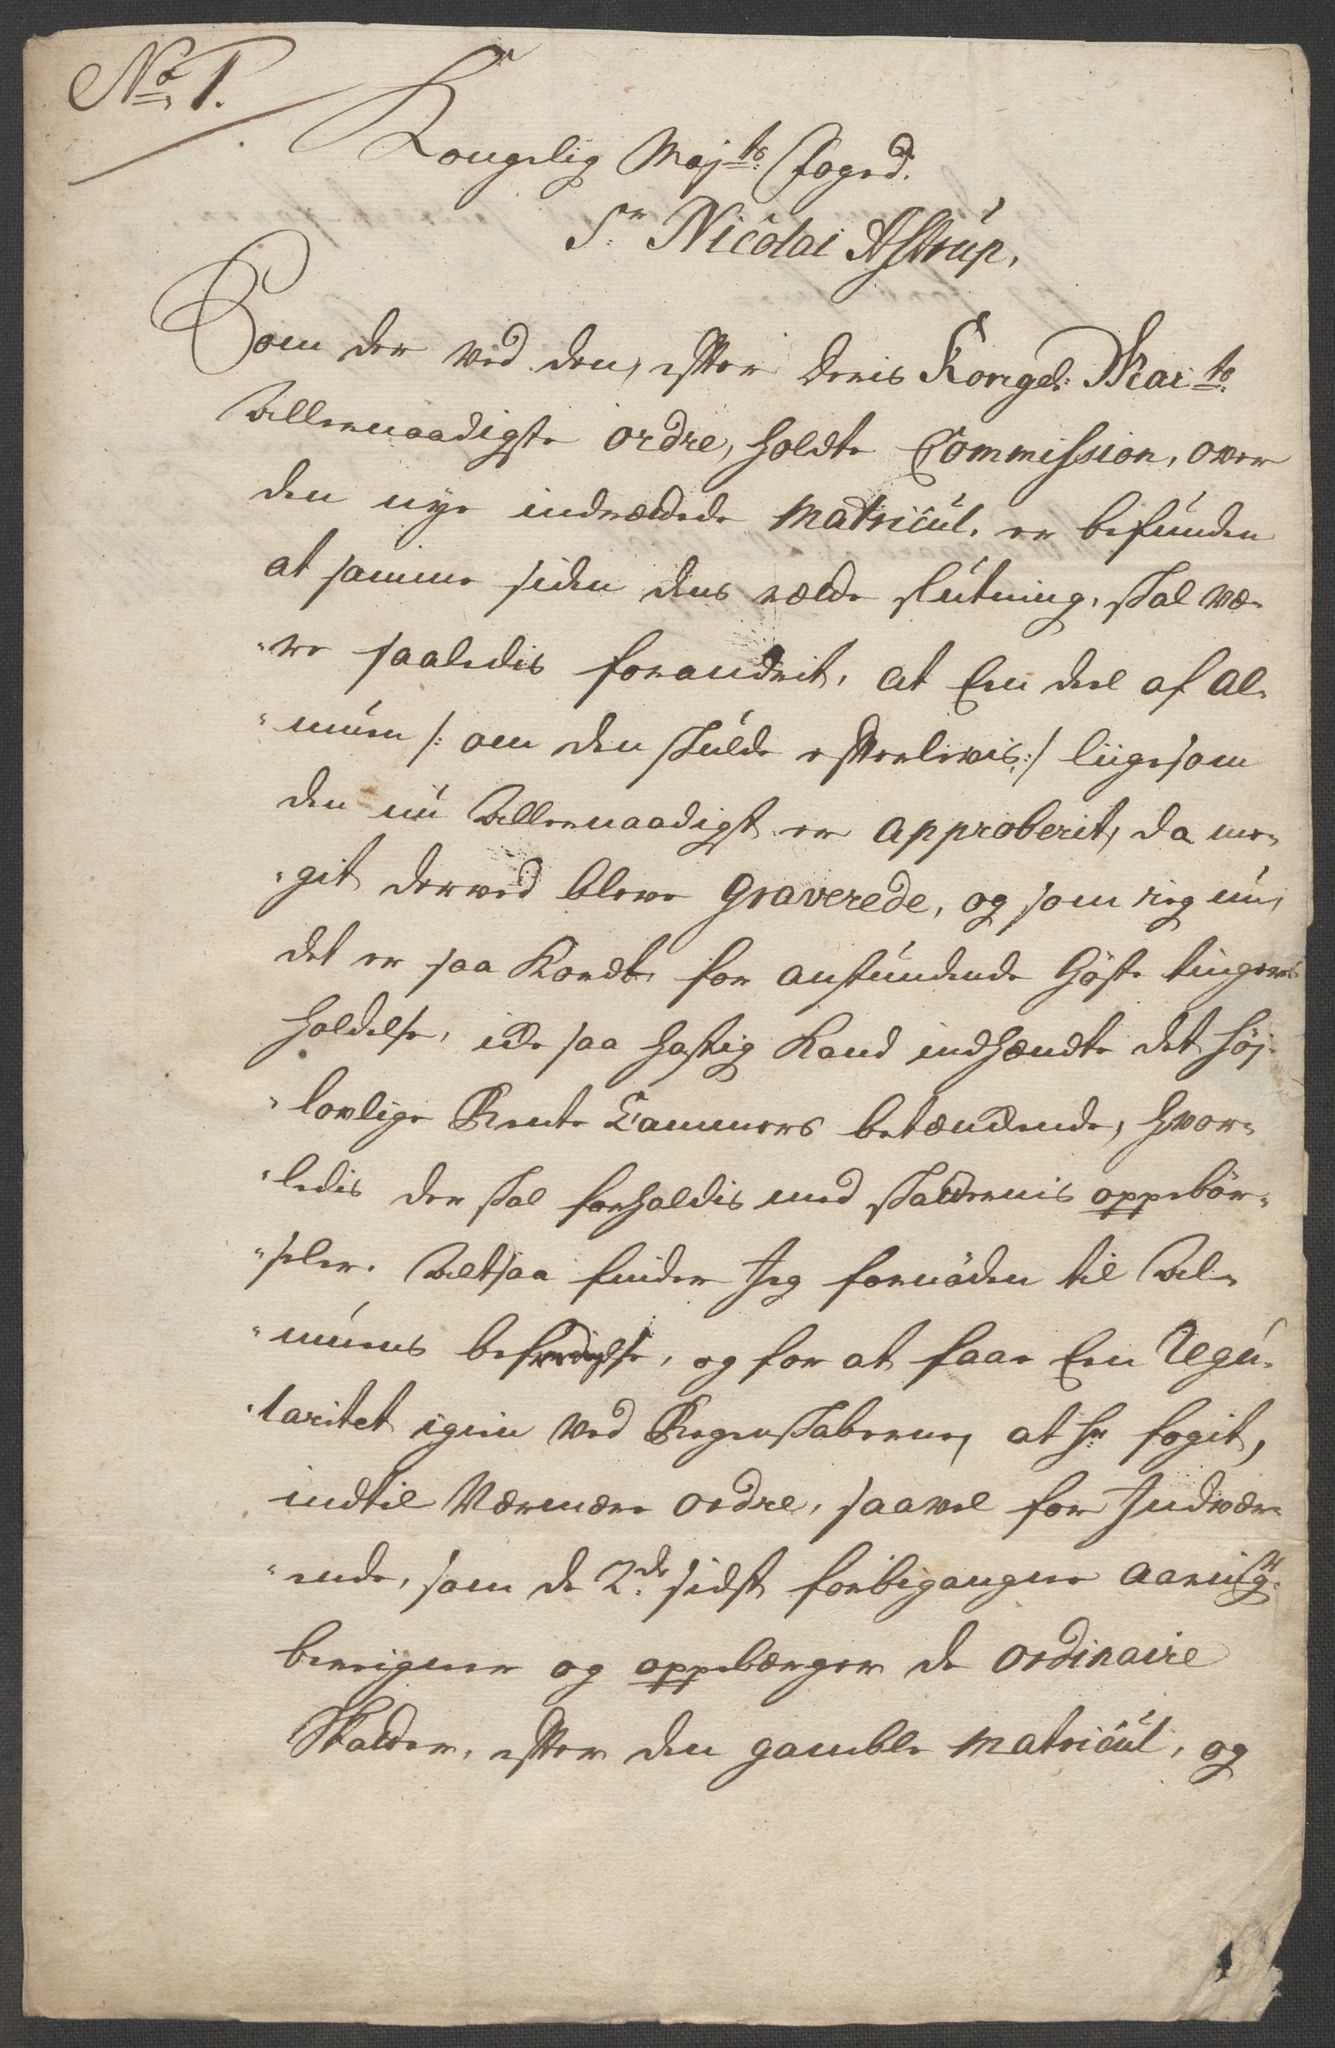 No 1.
Kongelig Maj:ts foged.
Sr Nicolai Astrup,
Som der ved den, efter deris Kongel: Mai:ts
Allernaadigste ordre, holdte Commission, over
den nye indrættede Matricul, er befunden
at samme siden dens rætte slutning, skal væ-
-re saaledis forandrit, at Een deel af Al-
-muen /: om den skulde efterlevis :/ liigesom
den nu Allernaadigst er approberit, da me-
-git derved bleve graverede, og som ieg nu,
det er saa Kordt for anstundende Höste tingenes
holdelse, icke saa hastig Kand indhændte det Höj-
-lovlige Rente Cammers betænckende, hvor-
-ledis der skal forholdis med skatternis oppebör-
-seler. Altsaa finder Jeg fornöden til Al-
-muens , og for at faae Een Regu-
-laritet igien ved Regenskaberne, at hr fogit,
indtil Nærmere ordre, saavel for Indvær-
-ende, som de 2de sidst forbigangne aaringer
beregner og oppebærger de ordinaire
Skatter, efter den gamble Matricul, og